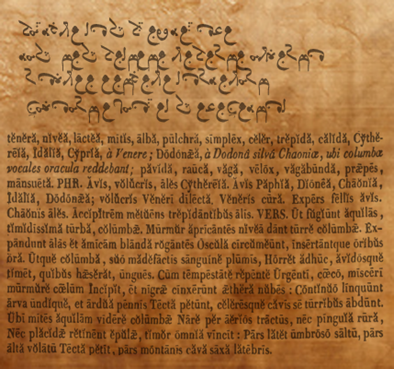 tĕnĕră, nĭvĕă, lāctĕă, mītĭs, ālbă, pūlchră, sīmplĕx, cĕlĕr, trĕpĭdă, călĭdă, Cȳthĕ-
rēĭă, Īdălĭă, Cȳprĭă, à Venere; Dōdōnǣă, à Dodonâ silvâ Chaoniæ, ubi columbæ
vocales oracula reddebant; păvĭdă, raūcă, văgă, vēlōx, văgăbūndă, prǣpĕs,
mānsuētă. PHR. Ăvĭs, vŏlŭcrĭs, ālĕs Cȳthĕrēĭă. Ăvĭs Păphĭă, Dĭōnĕă, Chāŏnĭă,
Īdălĭă, Dōdōnǣă; vŏlŭcrĭs Vĕnĕrī dīlēctă, Vĕnĕrĭs cūră. Expērs fēllĭs ăvĭs.
Chāŏnĭs ālĕs. Āccĭpĭtrēm mĕtŭēns trĕpĭdāntĭbŭs ālīs. VERS. Ūt fŭgĭūnt ăquĭlās,
tĭmĭdīssĭmă tūrbă, cŏlūmbæ. Mūrmŭr ăprīcāntēs nĭvĕă dānt tūrrĕ cŏlūmbæ. Ex-
pāndunt ālās ĕt ămīcām blāndă rŏgāntēs Oscŭlă circŭmĕūnt, īnsērtāntque ōrĭbŭs
ōră. Ūtquĕ cŏlūmbă, sŭō mădĕfāctīs sānguĭnĕ plūmīs, Hōrrĕt ădhūc, ăvĭdōsquĕ
tĭmĕt, quĭbŭs hǣsĕrăt, ūnguēs. Cūm tēmpēstātĕ rĕpēntĕ Ūrgēntī, cœcō, miscērī
mūrmŭrĕ cœlum Īncĭpĭt, ĕt nīgræ cinxērunt ǣthĕră nūbēs: Cōntĭnŭŏ linquūnt
ārva ūndīquĕ, et ārdŭă pēnnīs Tēctă pĕtūnt, cĕlĕrēsquĕ căvīs sē tūrrĭbŭs ābdūnt.
Ŭbĭ mĭtēs ăquĭlām vīdērĕ cŏlūmbæ Nārĕ pĕr āĕrĭōs trāctūs, nĕc pīnguĭă rūră,
Nĕc plăcĭdæ rĕtĭnēnt ĕpŭlæ, tĭmŏr ōmnĭă vīncĭt: Pārs lătĕt ūmbrōsō sāltū, pārs
āltă vŏlātū Tēctă pĕtĭt, pārs mōntānīs căvă sāxă lătēbrĭs.